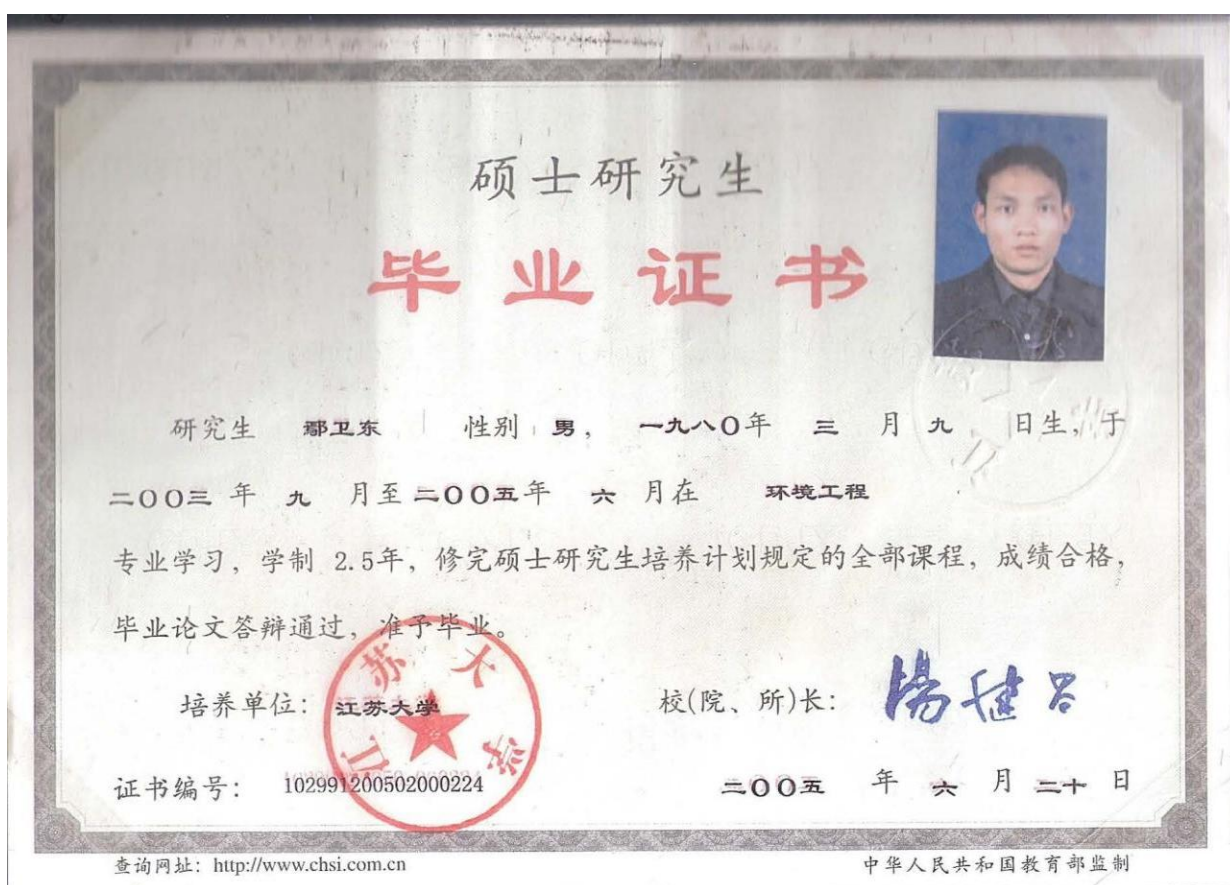 硕士研究生
毕业证书
研究生 鄢卫东 性别 男， 一九八〇年 三 月 九 日生，于
二〇〇三 年 九 月至 二〇〇五年 六 月在 环境工程
专业学习，学制 2.5年，修完硕士研究生培养计划规定的全部课程，成绩合格，
毕业论文答辩通过，准予毕业。
培养单位：江苏大学
校(院、所)长：
江苏大学
证书编号：102991200502000224
二〇〇五 年 六 月 二十 日
查询网址：http://www.chsi.com.cn
中华人民共和国教育部监制